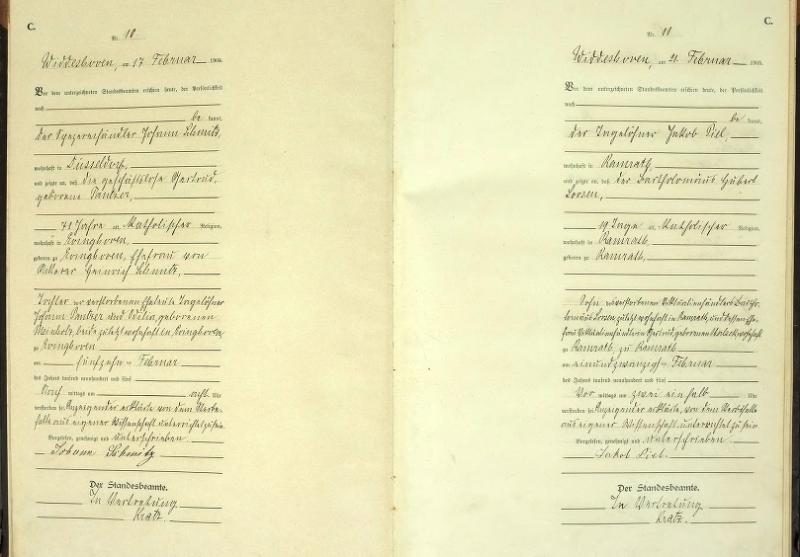 C.
Nr. 10
Widdeshoven, am 17 Februar 1905.
Vor dem unterzeichneten Standesbeamten erschien heute, der Persönlichkeit
nach
be kannt,
der Spezereihändler Johann Schmitz,
wohnhaft in Düsseldorf,
und zeigte an, daß die geschäftslose Gertrud,
geborene Pantzer,
71 Jahre alt, Katholischer Religion,
wohnhaft in Evinghoven,
geboren zu Evinghoven, Ehefrau von
Heinrich Schmitz,
Tochter der verstorbenen Eheleute Tagelöhner
Johann Pantzer und geborenen
beide zuletzt wohnhaft in Evinghoven
zu Evinghoven
am fünfzehn ten Februar
des Jahres tausend neunhundert und fünf
Nach mittags um acht Uhr
verstorben sei. Anzeigender erklärte, von dem Sterbe-
falle aus eigener Wissenschaft unterrichtet zu sein.
Vorgelesen, genehmigt und unterschrieben
Johann Schmitz
Der Standesbeamte.
In Vertretung
Kratz.
C.
Nr. 11
Widdeshoven, am 21 Februar 1905.
Vor dem unterzeichneten Standesbeamten erschien heute, der Persönlichkeit
nach
be kannt,
der Tagelöhner Jakob
wohnhaft in Ramrath,
und zeigte an, daß der Bartholomäus Hubert
Lorsen,
19 Tage alt, Katholischer Religion,
wohnhaft in Ramrath,
geboren zu Ramrath,
Sohn des verstorbenen Viktualienhändlers Bartho-
lomäus Lorsen, zuletzt wohnhaft in Ramrath, und dessen Ehe-
frau Viktualienhändlerin Gertrud, geborenen wohnhaft
zu Ramrath, zu Ramrath
am einundzwanzig ten Februar
des Jahres tausend neunhundert und fünf
Vor mittags um zwei einhalb Uhr
verstorben sei. Anzeigender erklärte, von dem Sterbefalle
aus eigener Wissenschaft unterrichtet zu sein
Vorgelesen, genehmigt und unterschrieben
Jakob
Der Standesbeamte.
In Vertretung
Kratz.